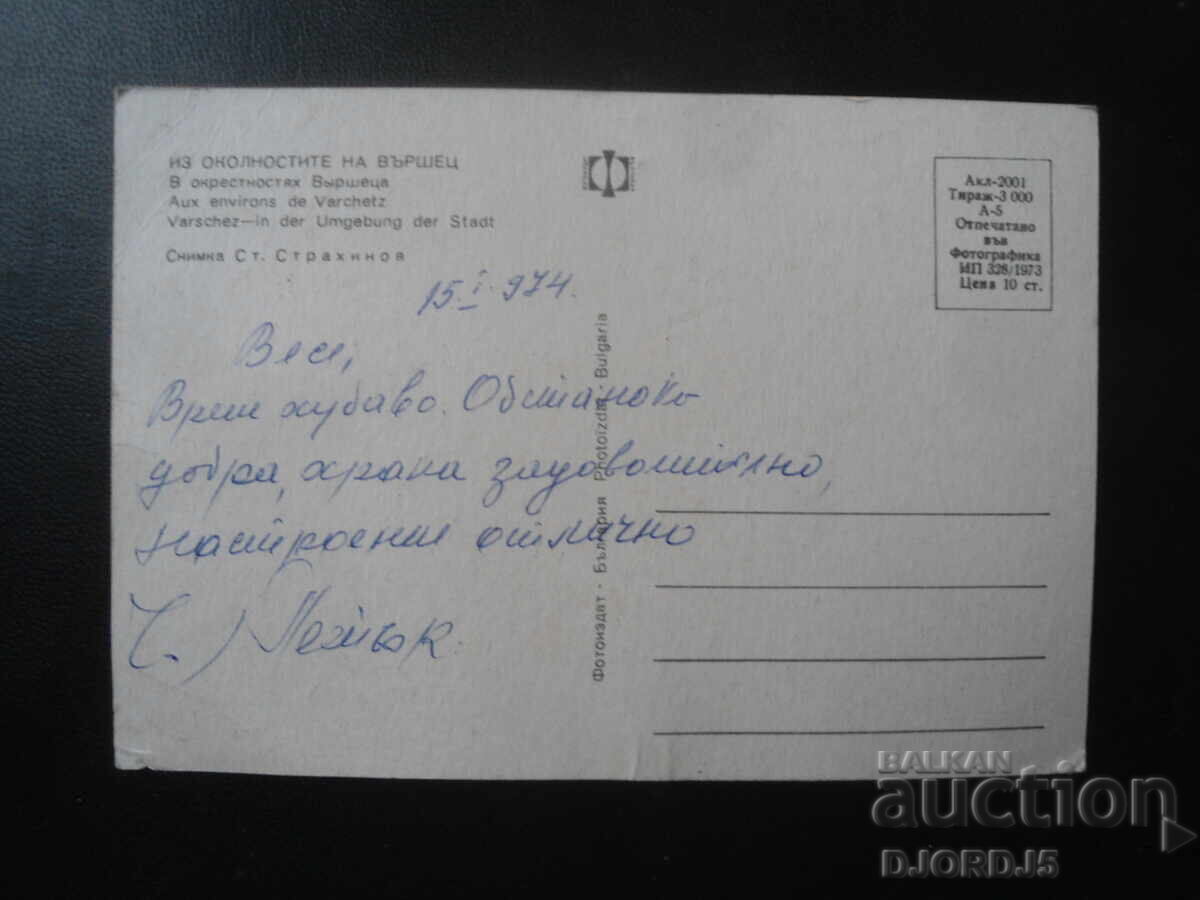 ИЗ ОКОЛНОСТИТЕ НА ВЪРШЕЦ
В окрестностях Выршеца
Aux environs de Varchetz
Varschez—in der Umgebung der Stadt
Снимка Ст. Страхинов
Акл-2001
Тираж-3 000
А-5
Отпечатано
във
Фотографика
ИП 328/1973
Цена 10 ст.
15.I.974.
Весе,
Време хубаво. Обстановка
добра, храна задоволително,
настроение отлично
Фотоиздат - България Photoizdat - Bulgaria
BALKAN
auction
DJORDJ5